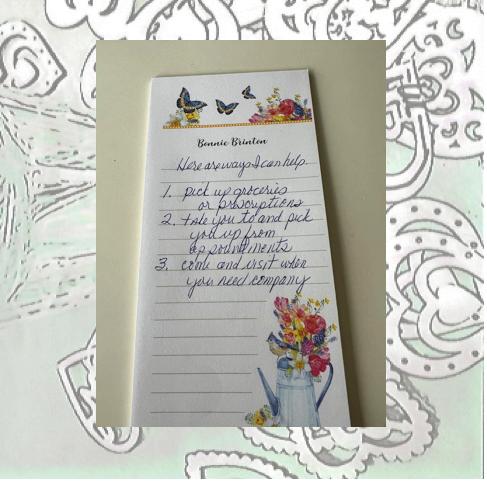 Bonnie Brinton
Here are ways I can help
1. pick up groceries
or prescriptions
2. take you to and pick
you up from
appointments
3. come and visit when
you need company